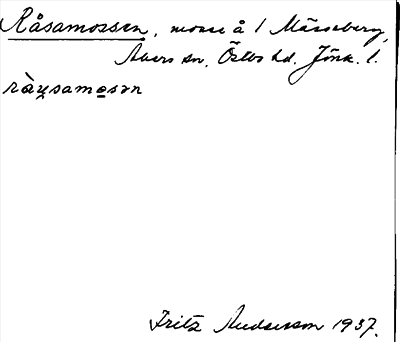 Råsamossen, mosse å 1 Mässeberg,
Åkers sn. Östbo hd. Jönk. l.
ràu̯samo̲sən
Fritz Andersson 1937.